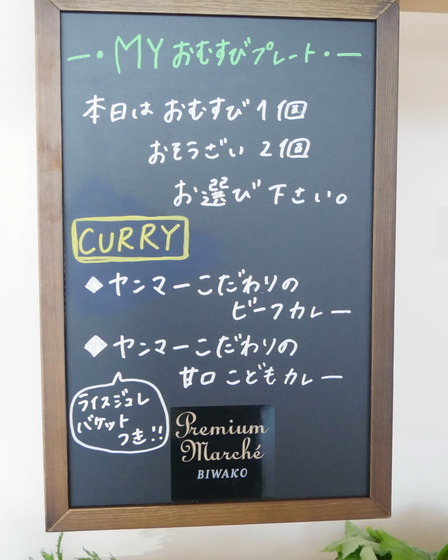 MYおむすびプレート
本日は おむすび1個
おそうざい 2個
お選び下さい。
CURRY
◆ヤンマーこだわりの
ビーフカレー
◆ヤンマーこだわりの
甘口こどもカレー
ライスジュレ
バケット
つき!!
Premium
Marché
BIWAKO